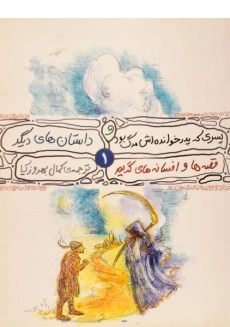 پسری که پدرخوانده‌اش مرگ بود و داستان های دیگر
۱
قصه ها و افسانه های گریم
ترجمه‌ی کمال بهروزکیا